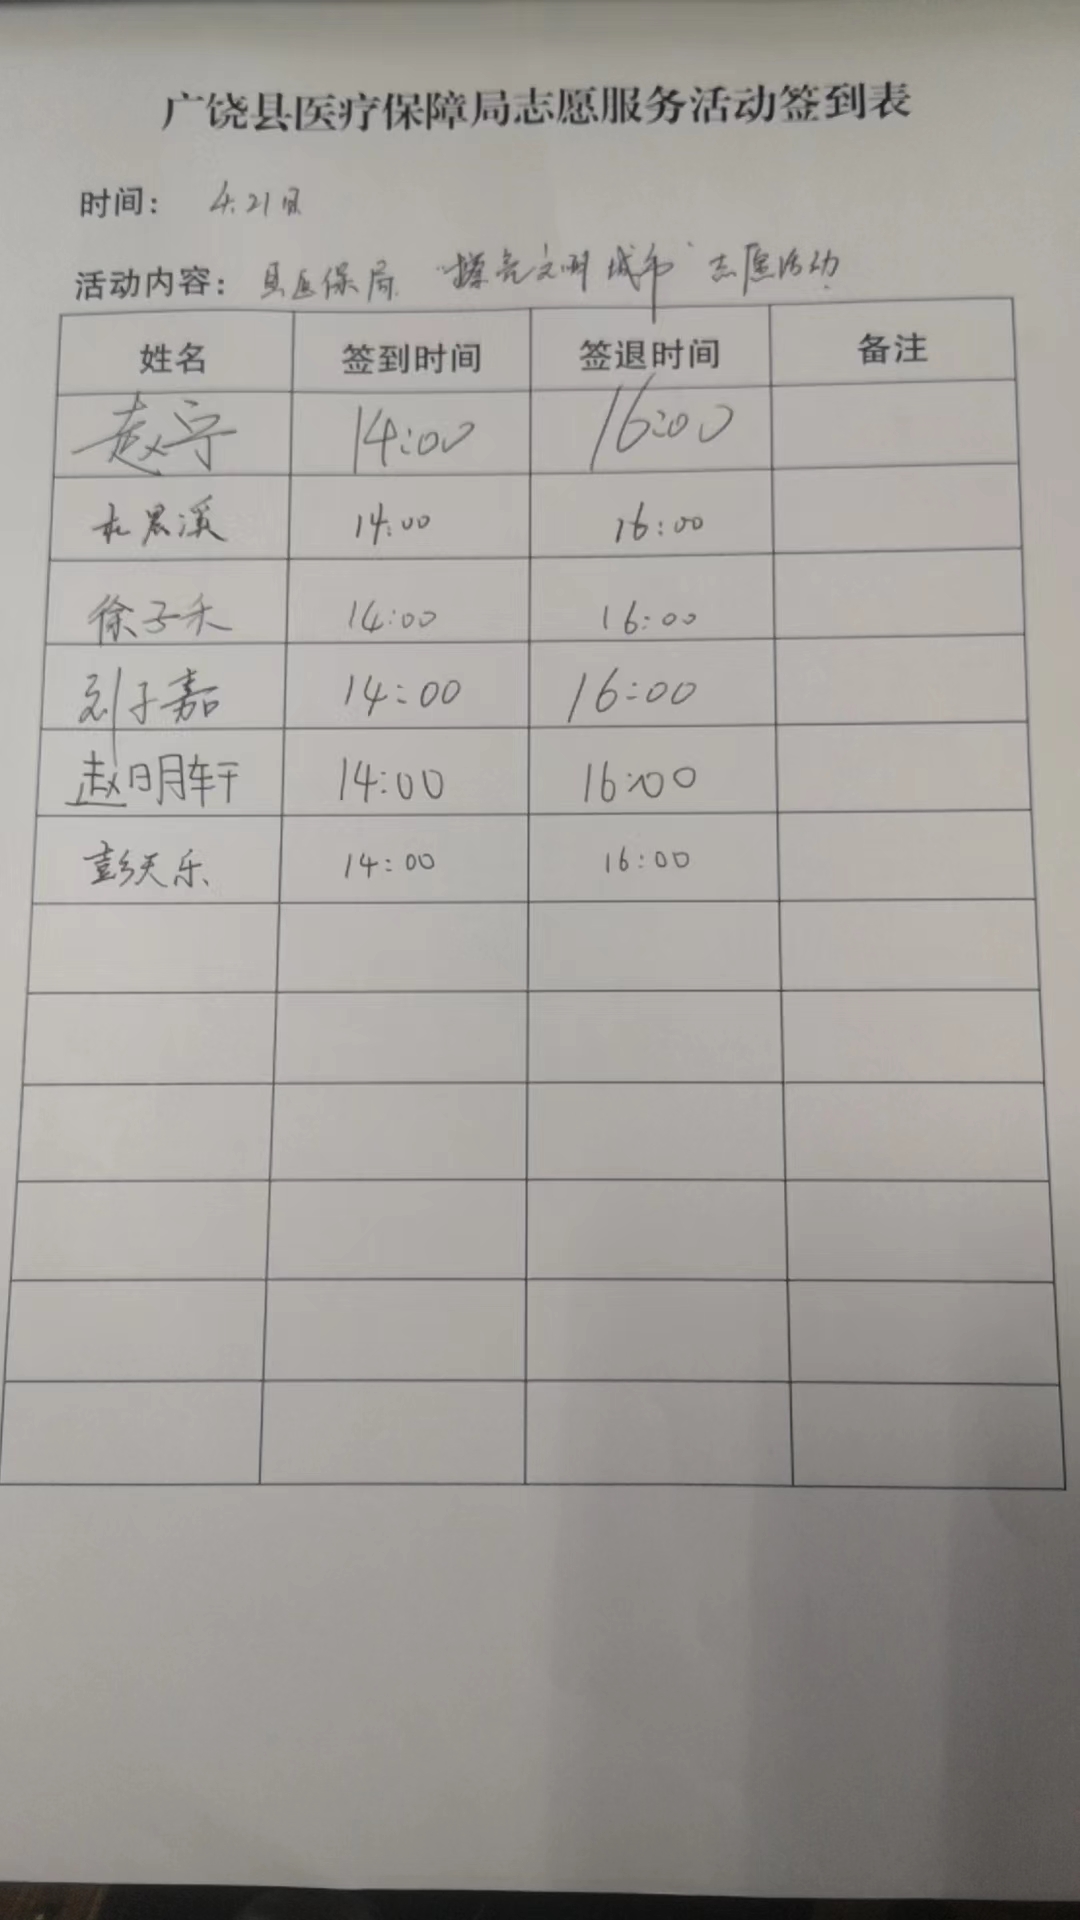 广饶县医疗保障局志愿服务活动签到表
时间： 4.21日
活动内容：县医保局 "擦亮文明城市" 志愿活动
姓名 签到时间 签退时间 备注
赵宁 14:00 16:00
杜思溪 14:00 16:00
徐子禾 14:00 16:00
刘子嘉 14:00 16:00
赵明轩 14:00 16:00
彭天乐 14:00 16:00